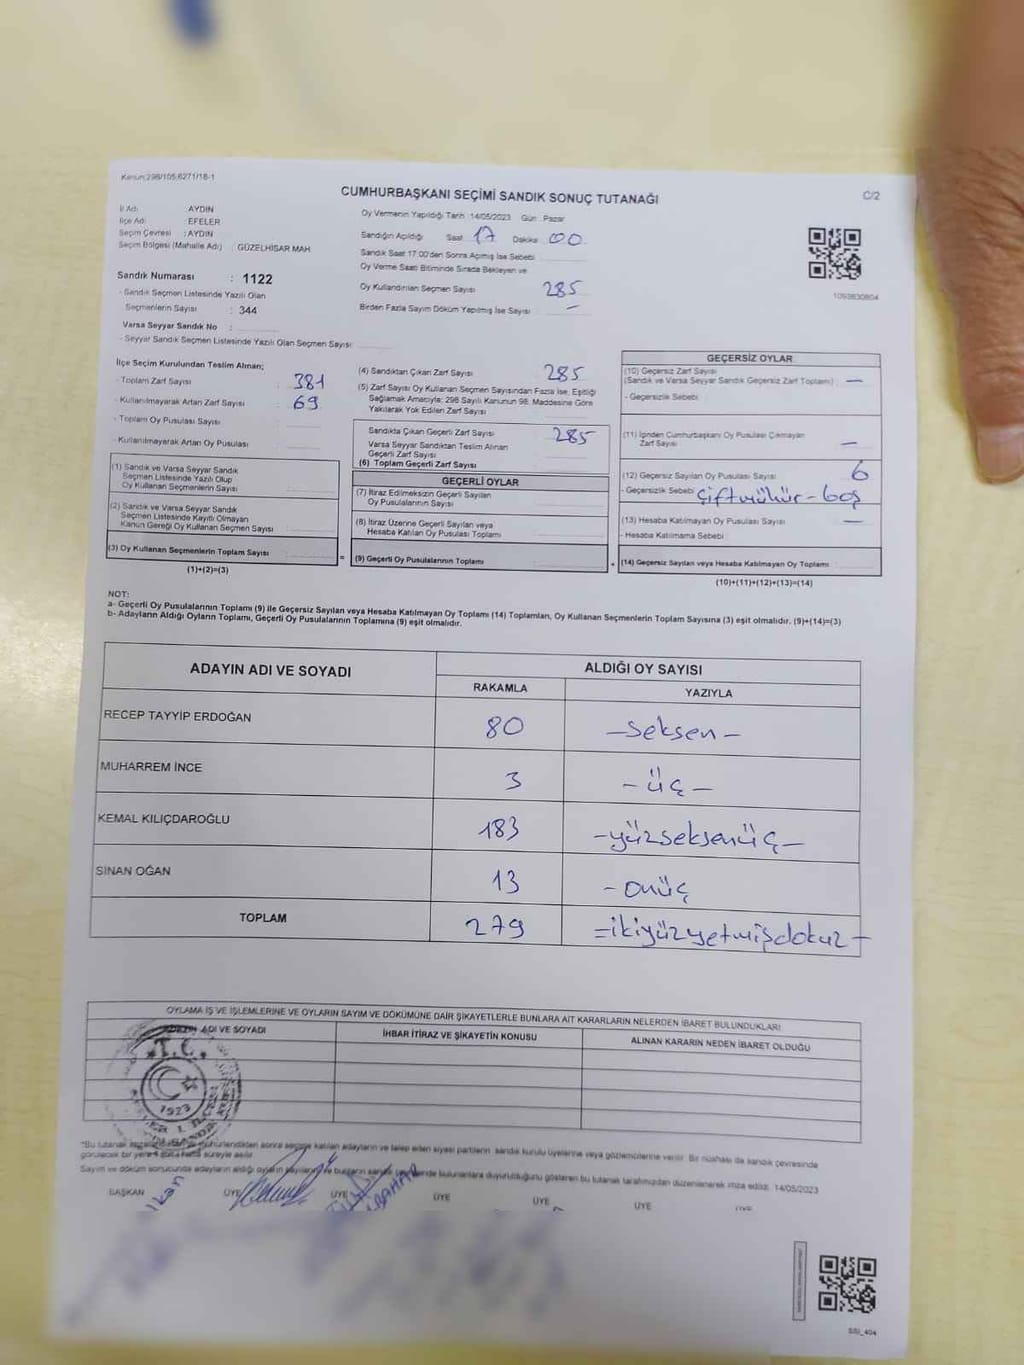 Kanun:298/105,6271/18-1
CUMHURBAŞKANI SEÇİMİ SANDIK SONUÇ TUTANAĞI
C/2
İl Adı : AYDIN
İlçe Adı : EFELER
Seçim Çevresi : AYDIN
Seçim Bölgesi (Mahalle Adı) : GÜZELHİSAR MAH
Sandık Numarası : 1122
- Sandık Seçmen Listesinde Yazılı Olan
Seçmenlerin Sayısı : 344
Varsa Seyyar Sandık No :
- Seyyar Sandık Seçmen Listesinde Yazılı Olan Seçmen Sayısı:
Oy Vermenin Yapıldığı Tarih :14/05/2023 Gün : Pazar
Sandığın Açıldığı Saat 17 Dakika 00
Sandık Saat 17:00'den Sonra Açımış İse Sebebi
Oy Verme Saati Bitiminde Sırada Bekleyen ve
Oy Kullandırılan Seçmen Sayısı 285
Birden Fazla Sayım Döküm Yapılmış İse Sayısı : —
1093630804
İlçe Seçim Kurulundan Teslim Alınan;
- Toplam Zarf Sayısı : 381
- Kullanılmayarak Artan Zarf Sayısı : 69
- Toplam Oy Pusulası Sayısı :
- Kullanılmayarak Artan Oy Pusulası :
(1) Sandık ve Varsa Seyyar Sandık
Seçmen Listesinde Yazılı Olup
Oy Kullanan Seçmenlerin Sayısı :
(2) Sandık ve Varsa Seyyar Sandık
Seçmen Listesinde Kayıtlı Olmayan
Kanun Gereği Oy Kullanan Seçmen Sayısı :
(3) Oy Kullanan Seçmenlerin Toplam Sayısı :
(1)+(2)=(3)
(4) Sandıktan Çıkan Zarf Sayısı 285
(5) Zarf Sayısı Oy Kullanan Seçmen Sayısından Fazla İse, Eşitliği
Sağlamak Amacıyla; 298 Sayılı Kanunun 98. Maddesine Göre
Yakılarak Yok Edilen Zarf Sayısı
Sandıkta Çıkan Geçerli Zarf Sayısı 285
Varsa Seyyar Sandıktan Teslim Alınan
Geçerli Zarf Sayısı
(6) Toplam Geçerli Zarf Sayısı
GEÇERLİ OYLAR
(7) İtiraz Edilmeksizin Geçerli Sayılan
Oy Pusulalarının Sayısı
(8) İtiraz Üzerine Geçerli Sayılan veya
Hesaba Katılan Oy Pusulası Toplamı
= (9) Geçerli Oy Pusulalarının Toplamı
GEÇERSİZ OYLAR
(10) Geçersiz Zarf Sayısı
(Sandık ve Varsa Seyyar Sandık Geçersiz Zarf Toplamı) —
- Geçersizlik Sebebi
(11) İçinden Cumhurbaşkanı Oy Pusulası Çıkmayan
Zarf Sayısı —
(12) Geçersiz Sayılan Oy Pusulası Sayısı 6
- Geçersizlik Sebebi Çiftmühür-boş
(13) Hesaba Katılmayan Oy Pusulası Sayısı —
- Hesaba Katılmama Sebebi
+ (14) Geçersiz Sayılan veya Hesaba Katılmayan Oy Toplamı
(10)+(11)+(12)+(13)=(14)
NOT:
a- Geçerli Oy Pusulalarının Toplamı (9) ile Geçersiz Sayılan veya Hesaba Katılmayan Oy Toplamı (14) Toplamları, Oy Kullanan Seçmenlerin Toplam Sayısına (3) eşit olmalıdır. (9)+(14)=(3)
b- Adayların Aldığı Oyların Toplamı, Geçerli Oy Pusulalarının Toplamına (9) eşit olmalıdır.
ADAYIN ADI VE SOYADI
ALDIĞI OY SAYISI
RAKAMLA YAZIYLA
RECEP TAYYİP ERDOĞAN 80 -Seksen-
MUHARREM İNCE 3 -üç-
KEMAL KILIÇDAROĞLU 183 -yüzseksenüç-
SİNAN OĞAN 13 -onüç
TOPLAM 279 =ikiyüzyetmişdokuz-
OYLAMA İŞ VE İŞLEMLERİNE VE OYLARIN SAYIM VE DÖKÜMÜNE DAİR ŞİKAYETLERLE BUNLARA AİT KARARLARIN NELERDEN İBARET BULUNDUKLARI
ADI VE SOYADI
İHBAR İTİRAZ VE ŞİKAYETİN KONUSU
ALINAN KARARIN NEDEN İBARET OLDUĞU
T.C.
1923
"Bu tutanak mühürlendikten sonra seçime katılan adayların ve talep eden siyasi partilerin sandık kurulu üyelerine veya gözlemcilerine verilir. Bir nüshası da sandık çevresinde
görülecek bir yere süreyle asılır.
Sayım ve döküm sonucunda adayların aldığı oyların sayılarını ve bunların sandık çevresinde bulunanlara duyurulduğunu gösteren bu tutanak tarafımızdan düzenlenerek imza edildi. 14/05/2023
BAŞKAN ÜYE ÜYE ÜYE ÜYE ÜYE ÜYE
SSI_404